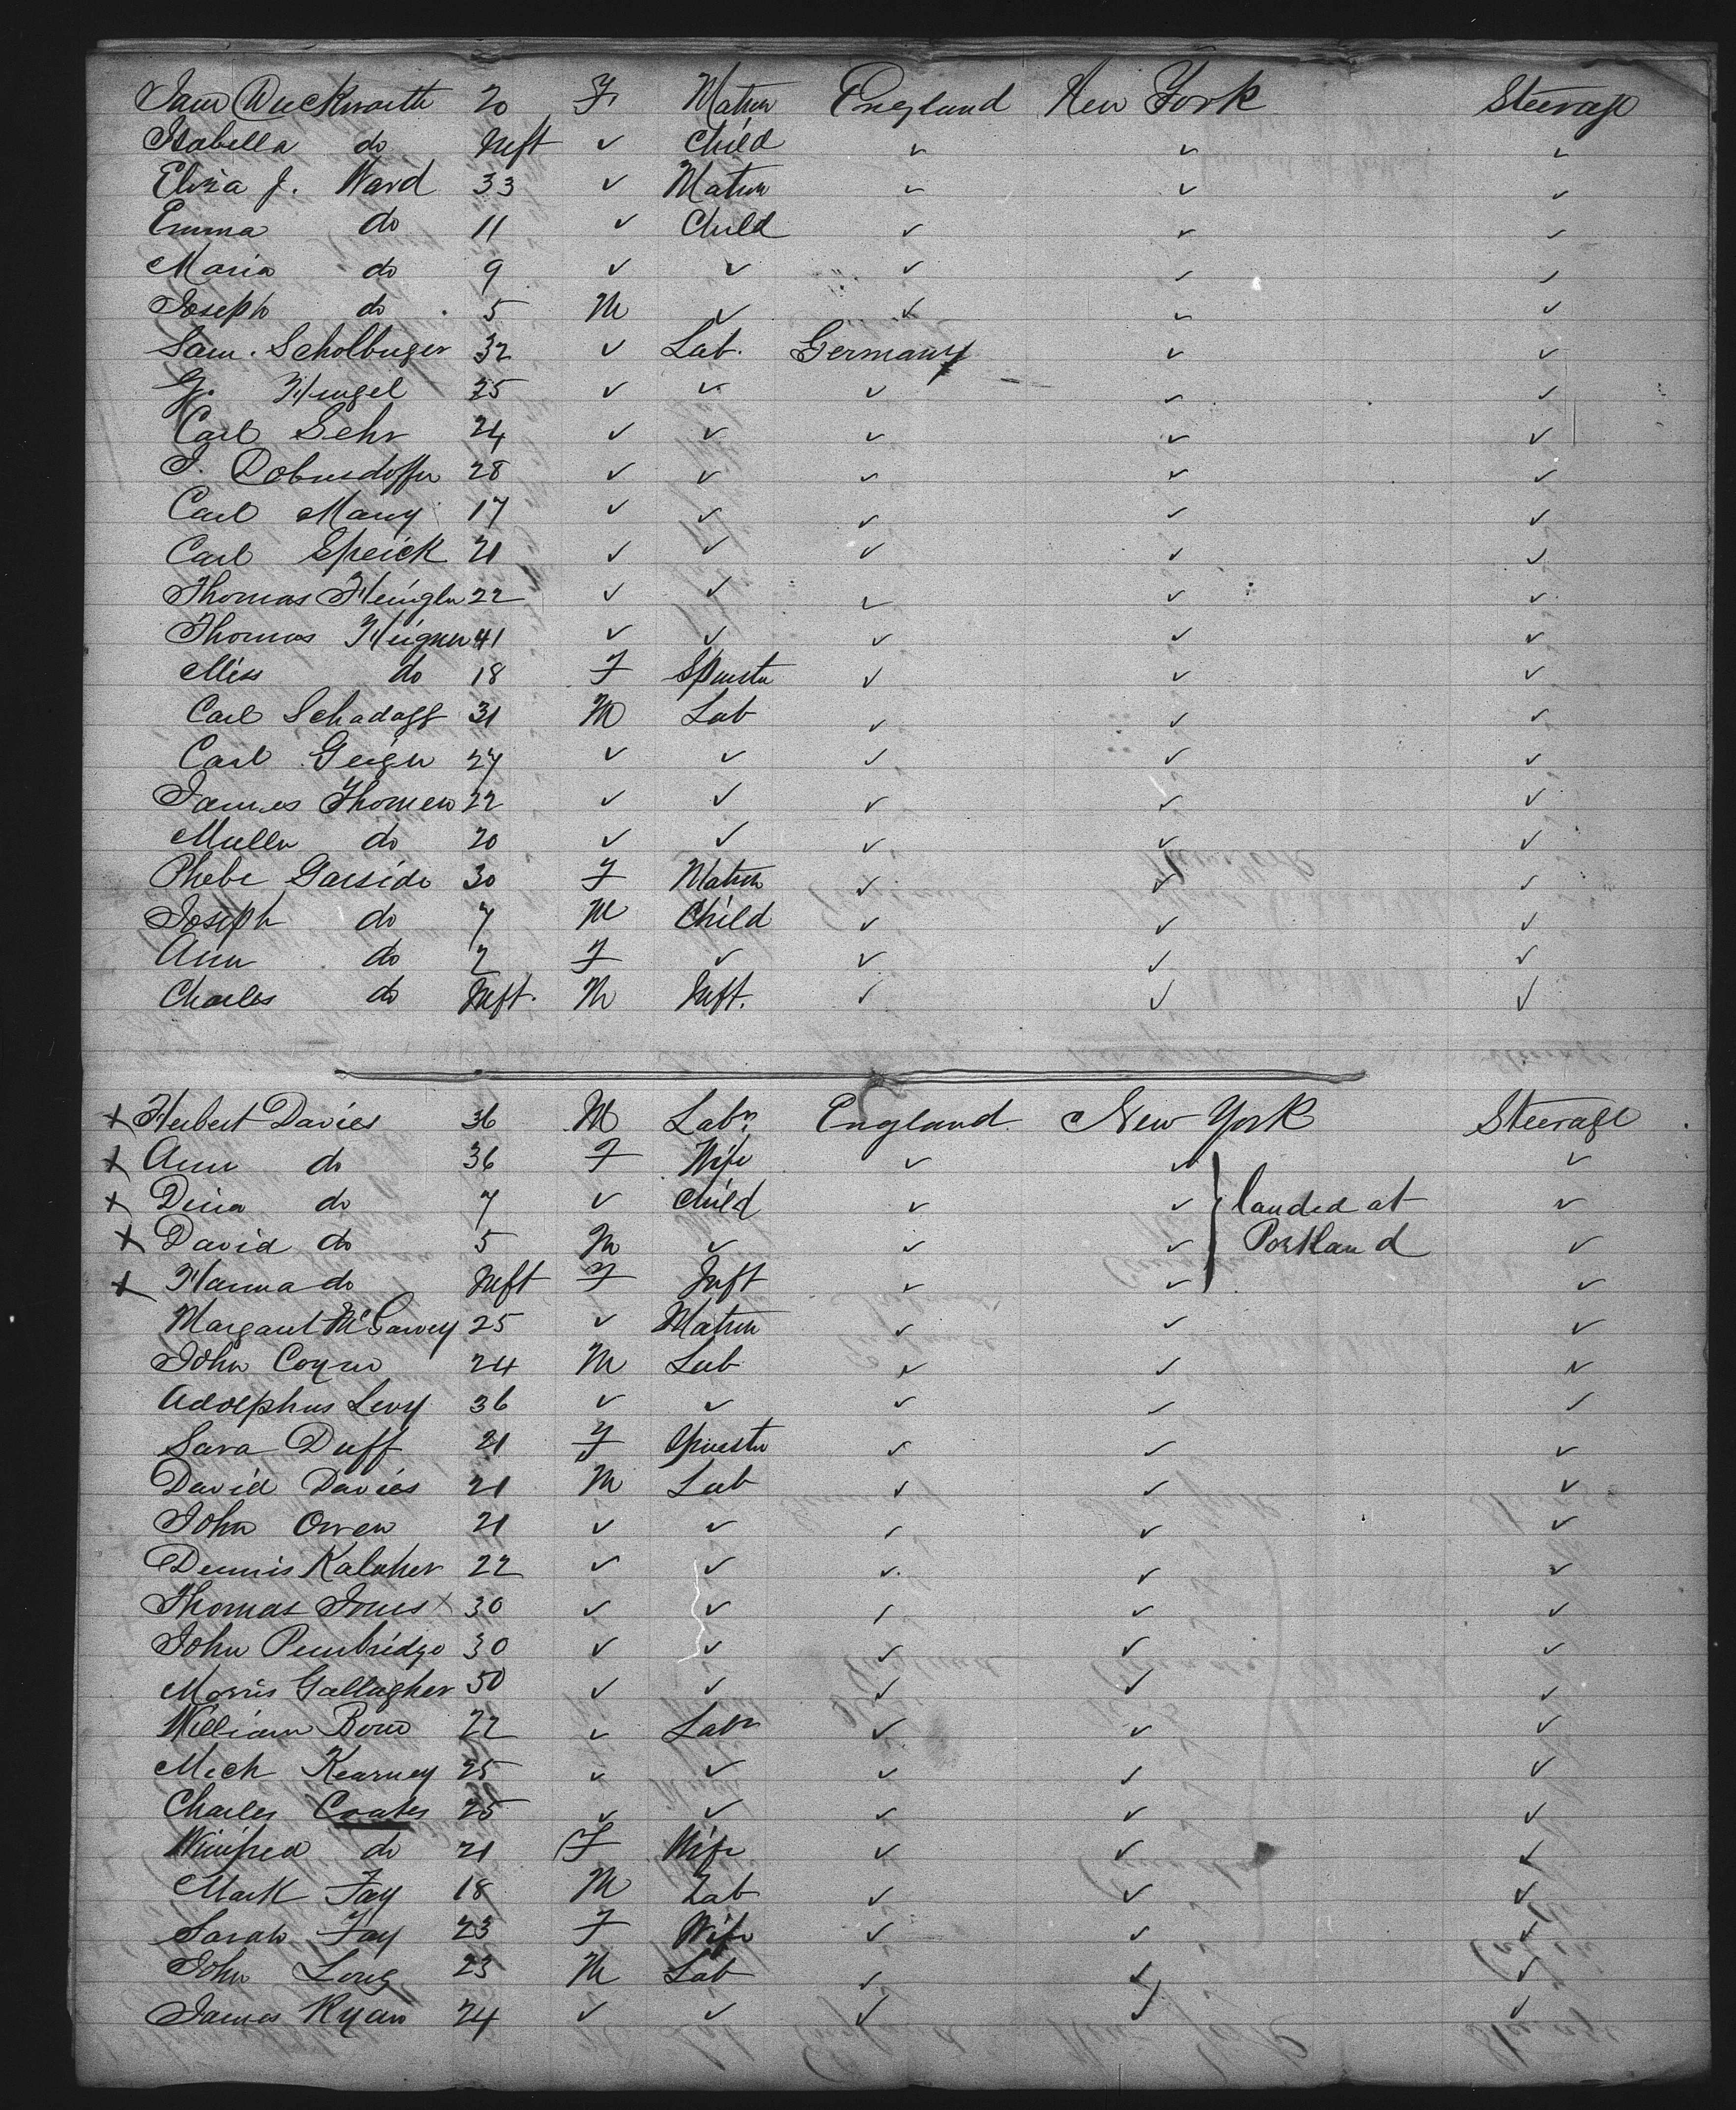 Jane Duckworth 20 F Matron England New York Steerage
Isabella do Inft ✓ Child ✓ ✓ ✓
Eliza J. Ward 33 ✓ Matron ✓ ✓ ✓
Emma do 11 ✓ Child ✓ ✓ ✓
Maria do 9 ✓ ✓ ✓ ✓ ✓
Joseph do 5 M ✓ ✓ ✓ ✓
Sam. Scholbuger 32 ✓ Lab. Germany ✓ ✓
G. Hengel 25 ✓ ✓ ✓ ✓ ✓
Carl Sehr 24 ✓ ✓ ✓ ✓ ✓
J. 28 ✓ ✓ ✓ ✓ ✓
Carl Many 17 ✓ ✓ ✓ ✓ ✓
Carl Speick 21 ✓ ✓ ✓ ✓ ✓
Thomas 22 ✓ ✓ ✓ ✓ ✓
Thomas 41 ✓ ✓ ✓ ✓ ✓
Miss do 18 F Spinster ✓ ✓ ✓
Carl Schadaff 31 M Lab ✓ ✓ ✓
Carl Geiger 27 ✓ ✓ ✓ ✓ ✓
James Thomen 22 ✓ ✓ ✓ ✓ ✓
Muller do 20 ✓ ✓ ✓ ✓ ✓
Phebe Garside 30 F Matron ✓ ✓ ✓
Joseph do 7 M Child ✓ ✓ ✓
Ann do 2 F ✓ ✓ ✓ ✓
Charles do Inft. M Inft. ✓ ✓ ✓
x Herbert Davies 36 M Labr. England New York Steerage
x Ann do 36 F Wife ✓ ✓ ✓
x Dina do 7 ✓ Child ✓ ✓ landed at ✓
x David do 5 M ✓ ✓ ✓ Portland ✓
x Hanna do Inft F Inft ✓ ✓ ✓
Margaret McGarvey 25 ✓ Matron ✓ ✓ ✓
John Coyne 24 M Lab ✓ ✓ ✓
Adolphus Levy 36 ✓ ✓ ✓ ✓ ✓
Sara Duff 21 F Spinster ✓ ✓ ✓
David Davies 21 M Lab ✓ ✓ ✓
John Owen 21 ✓ ✓ ✓ ✓ ✓
Dennis Kalaher 22 ✓ ✓ ✓ ✓ ✓
Thomas Jones x 30 ✓ ✓ ✓ ✓ ✓
John Pembridge 30 ✓ ✓ ✓ ✓ ✓
Morris Gallagher 50 ✓ ✓ ✓ ✓ ✓
William 22 ✓ Labr ✓ ✓ ✓
Mich Kearney 25 ✓ ✓ ✓ ✓ ✓
Charles Coates 25 ✓ ✓ ✓ ✓ ✓
Winifred do 21 F Wife ✓ ✓ ✓
Mark Fay 18 M Lab ✓ ✓ ✓
Sarah Fay 23 F Wife ✓ ✓ ✓
John Long 23 M Lab ✓ ✓ ✓
James Ryan 24 ✓ ✓ ✓ ✓ ✓